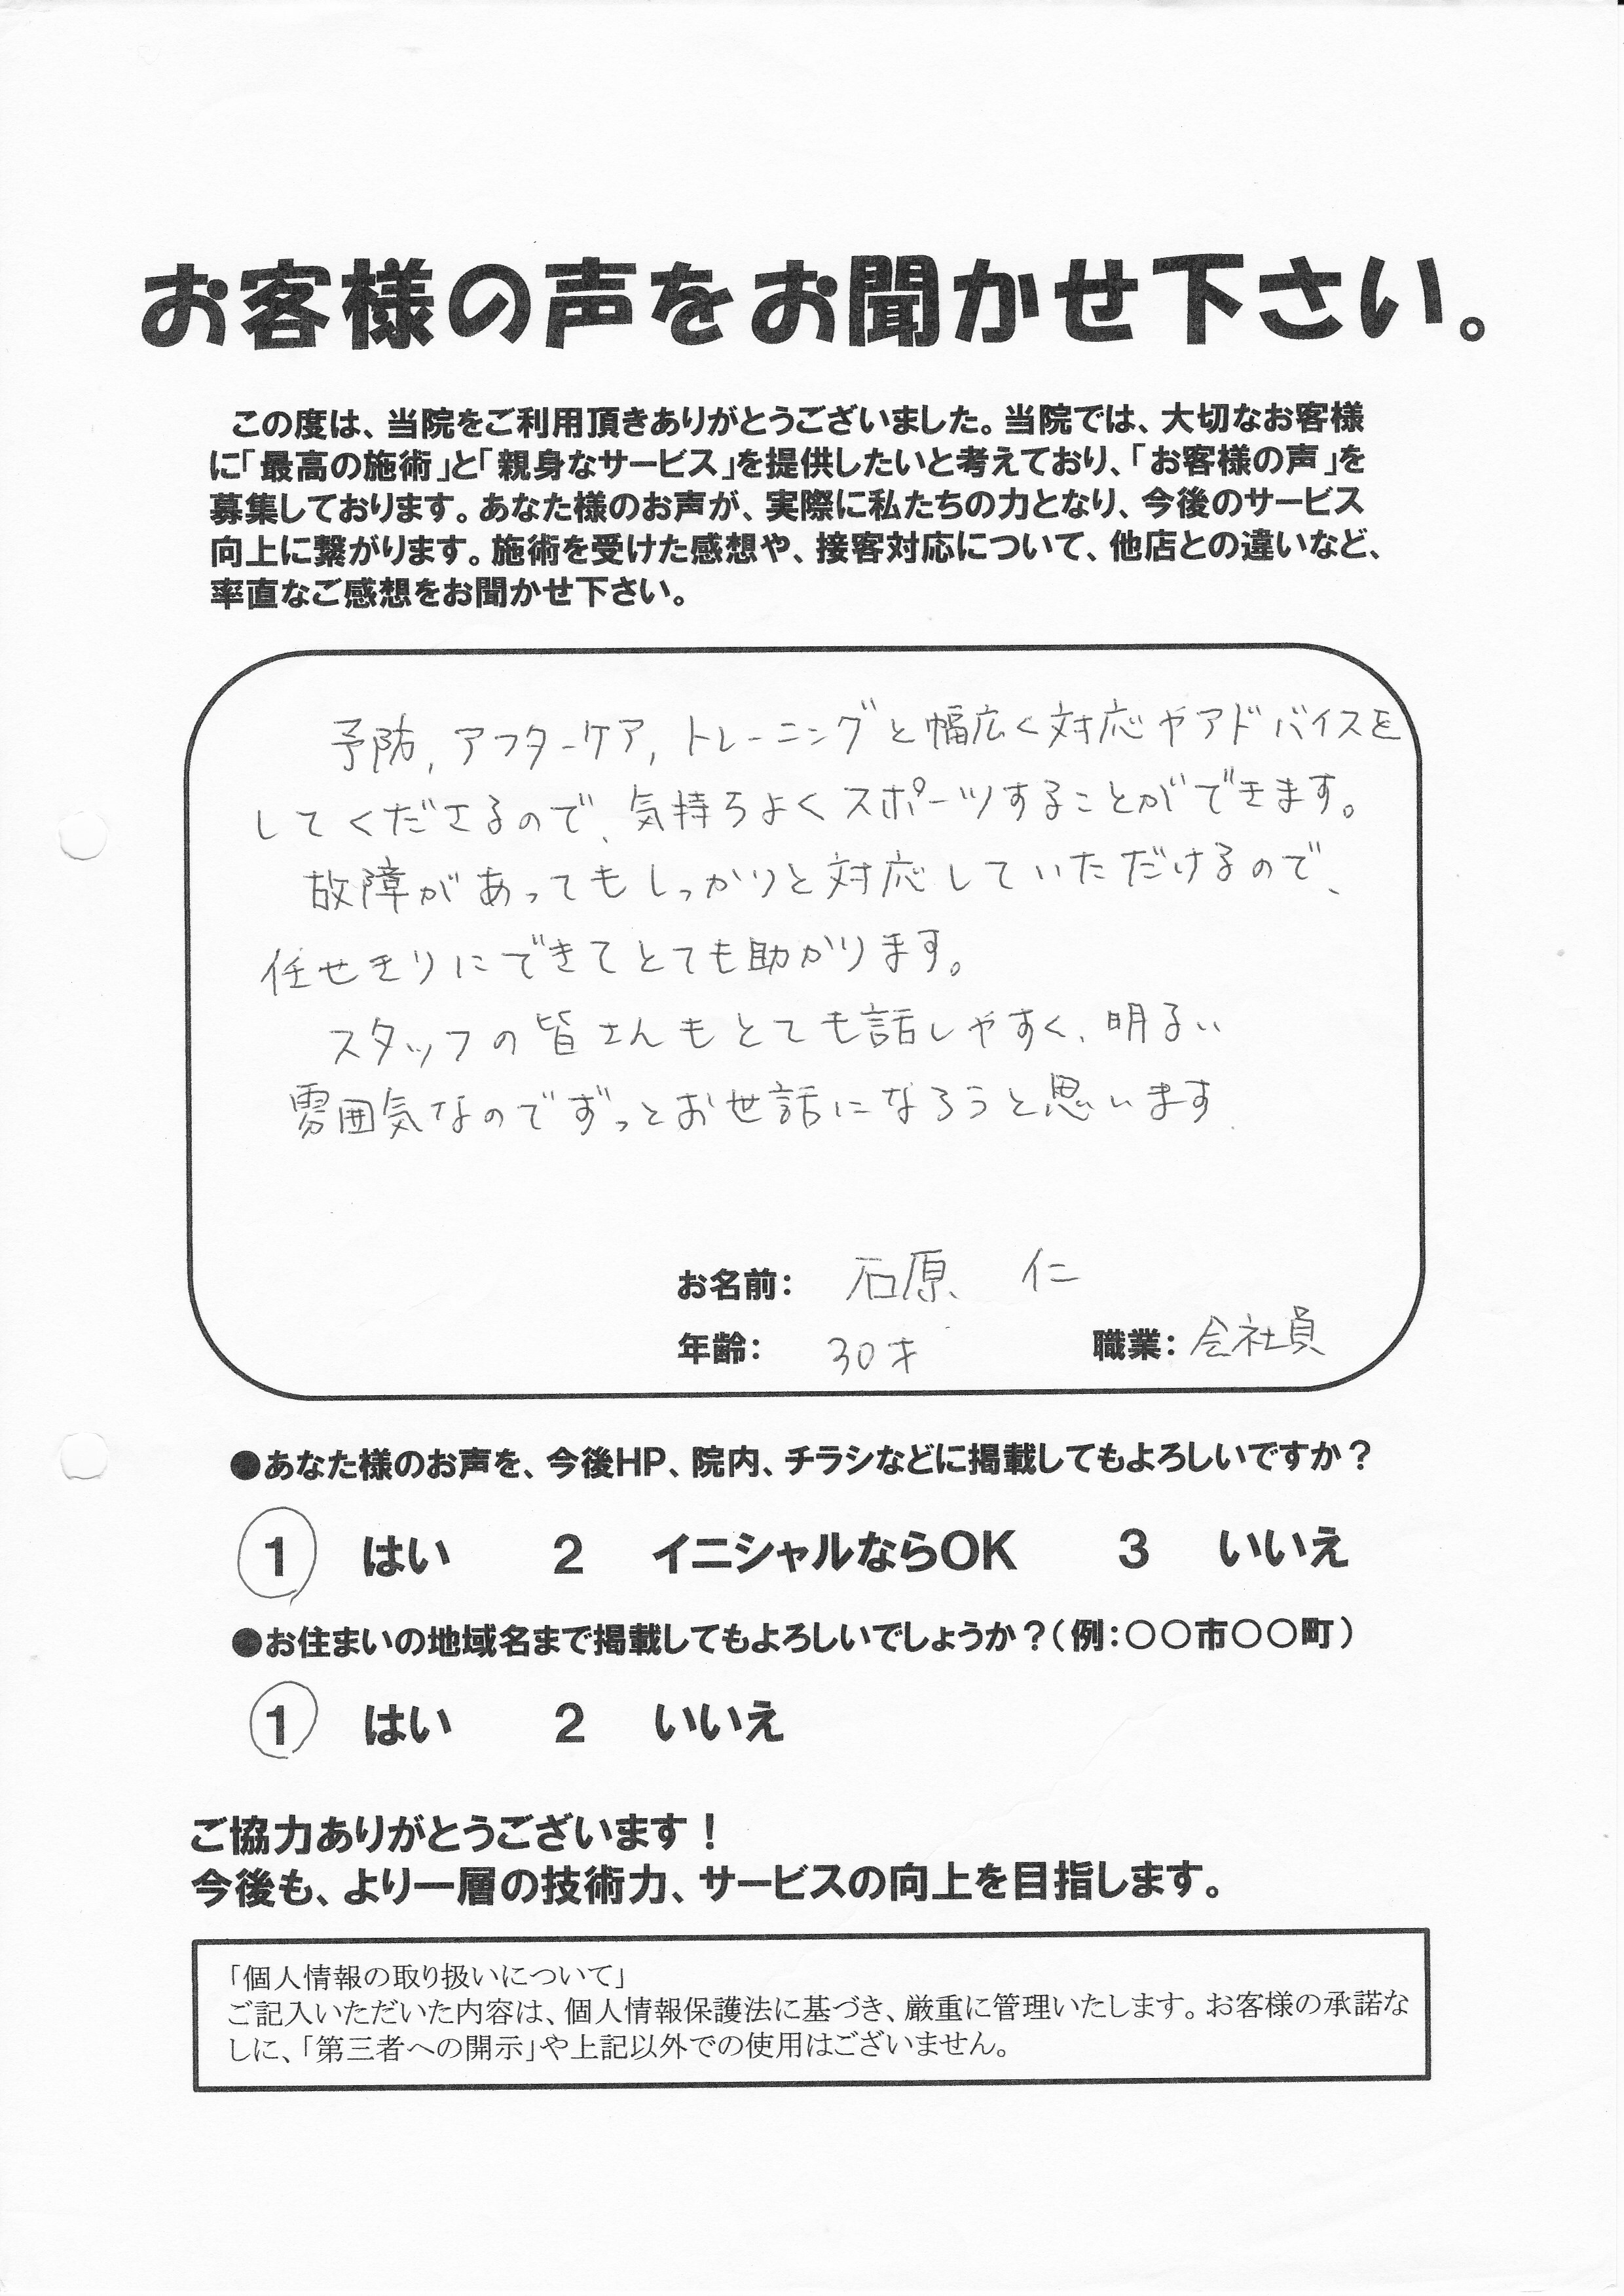 お客様の声をお聞かせ下さい。
この度は、当院をご利用頂きありがとうございました。当院では、大切なお客様
に「最高の施術」と「親身なサービス」を提供したいと考えており、「お客様の声」を
募集しております。あなた様のお声が、実際に私たちの力となり、今後のサービス
向上に繋がります。施術を受けた感想や、接客対応について、他店との違いなど、
率直なご感想をお聞かせ下さい。
予防,アフターケア,トレーニングと幅広く対応やアドバイスを
してくださるので、気持ちよくスポーツすることができます。
故障があってもしっかりと対応していただけるので、
任せきりにできてとても助かります。
スタッフの皆さんもとても話しやすく、明るい
雰囲気なのでずっとお世話になろうと思います.
お名前: 石原 仁
年齢: 30才 職業: 会社員
●あなた様のお声を、今後HP、院内、チラシなどに掲載してもよろしいですか？
1 はい 2 イニシャルならOK 3 いいえ
●お住まいの地域名まで掲載してもよろしいでしょうか？(例:〇〇市〇〇町)
1 はい 2 いいえ
ご協力ありがとうございます！
今後も、より一層の技術力、サービスの向上を目指します。
「個人情報の取り扱いについて」
ご記入いただいた内容は、個人情報保護法に基づき、厳重に管理いたします。お客様の承諾な
しに、「第三者への開示」や上記以外での使用はございません。